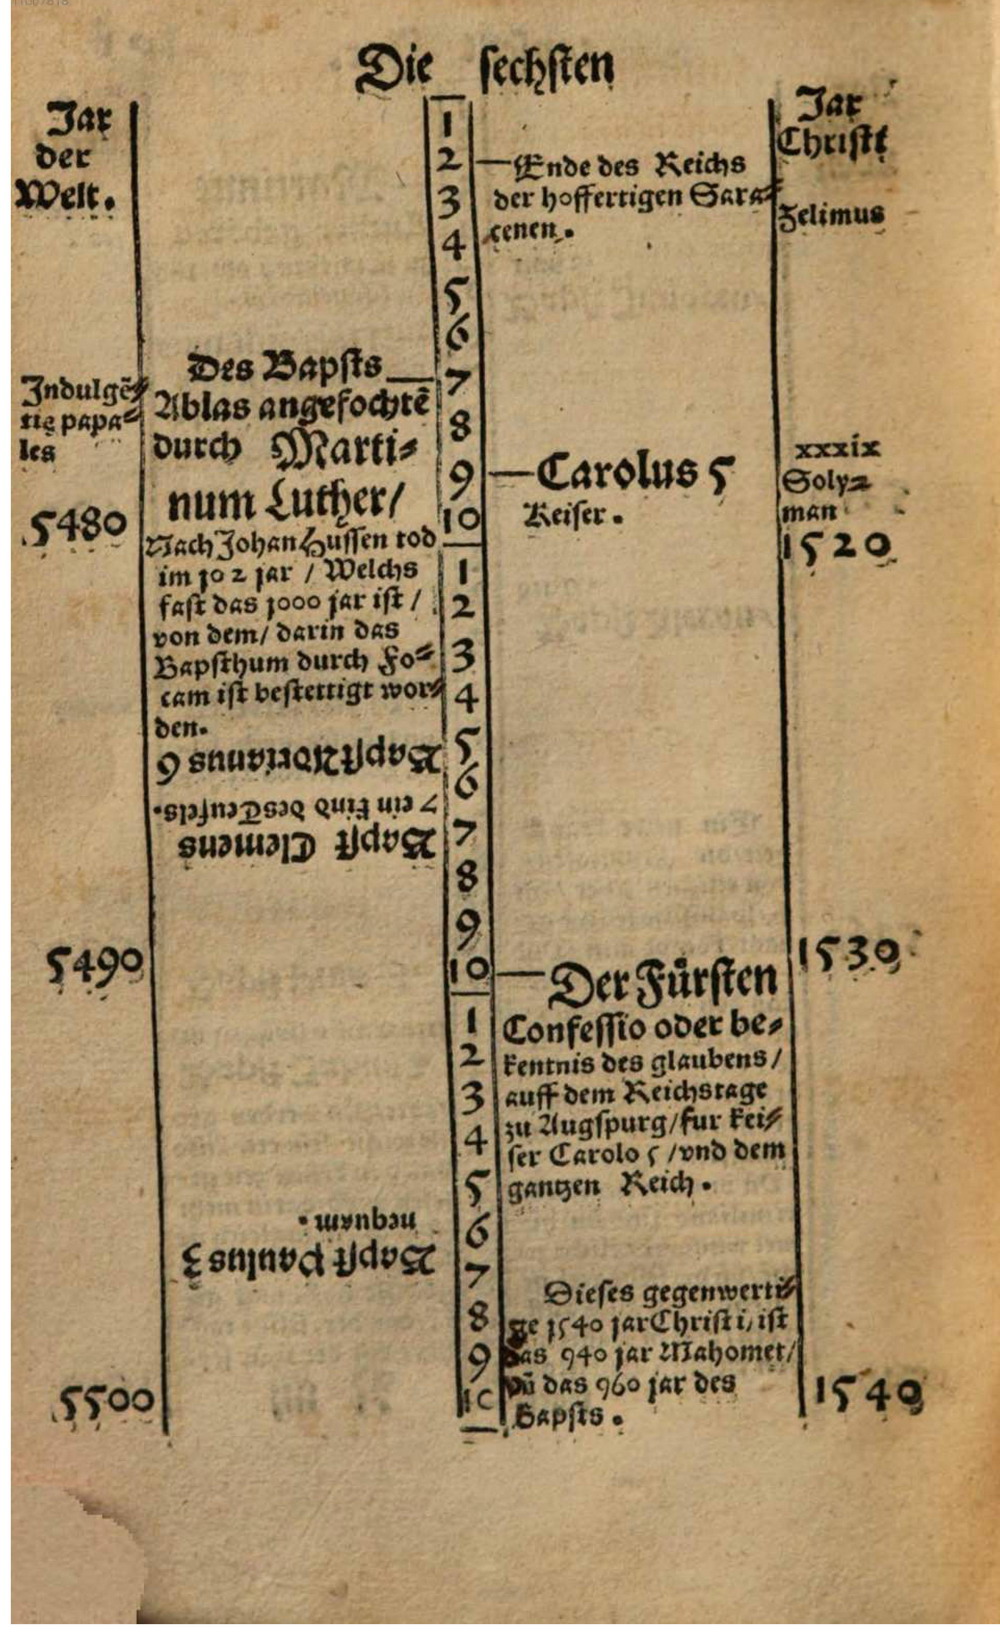 Die sechsten
Jar
der
Welt.
Jar
Christi
1
2
3
4
5
6
7
8
9
10
—Ende des Reichs
der hoffertigen Sara⸗
cenen.
Zelimus
Des Bapsts—
Ablas angefochtē
durch Marti⸗
num Luther/
Nach Johan Hussen tod
im 102 jar / Welchs
fast das 1000 jar ist /
von dem/ darin das
Bapsthum durch Fo⸗
cam ist bestettigt wor⸗
den.
Indulgē⸗
tię papa⸗
les
5480
—Carolus 5
Keiser.
xxxix
Soly⸗
man
1520
1
2
3
4
5
6
7
8
9
10
Bapst Adrianus 6
Bapst Clemens
7 ein kind des Teufels.
5490
1530
—Der Fürsten
Confessio oder be⸗
kentnis des glaubens/
auff dem Reichstage
zu Augspurg/fur kei⸗
ser Carolo 5 /vnd dem
gantzen Reich.
1
2
3
4
5
6
7
8
9
10
Bapst Paulus 3
nequam.
Dieses gegenwerti⸗
ge 1540 jar Christi, ist
das 940 jar Mahomet/
vñ das 960 jar des
Bapsts.
5500
1540